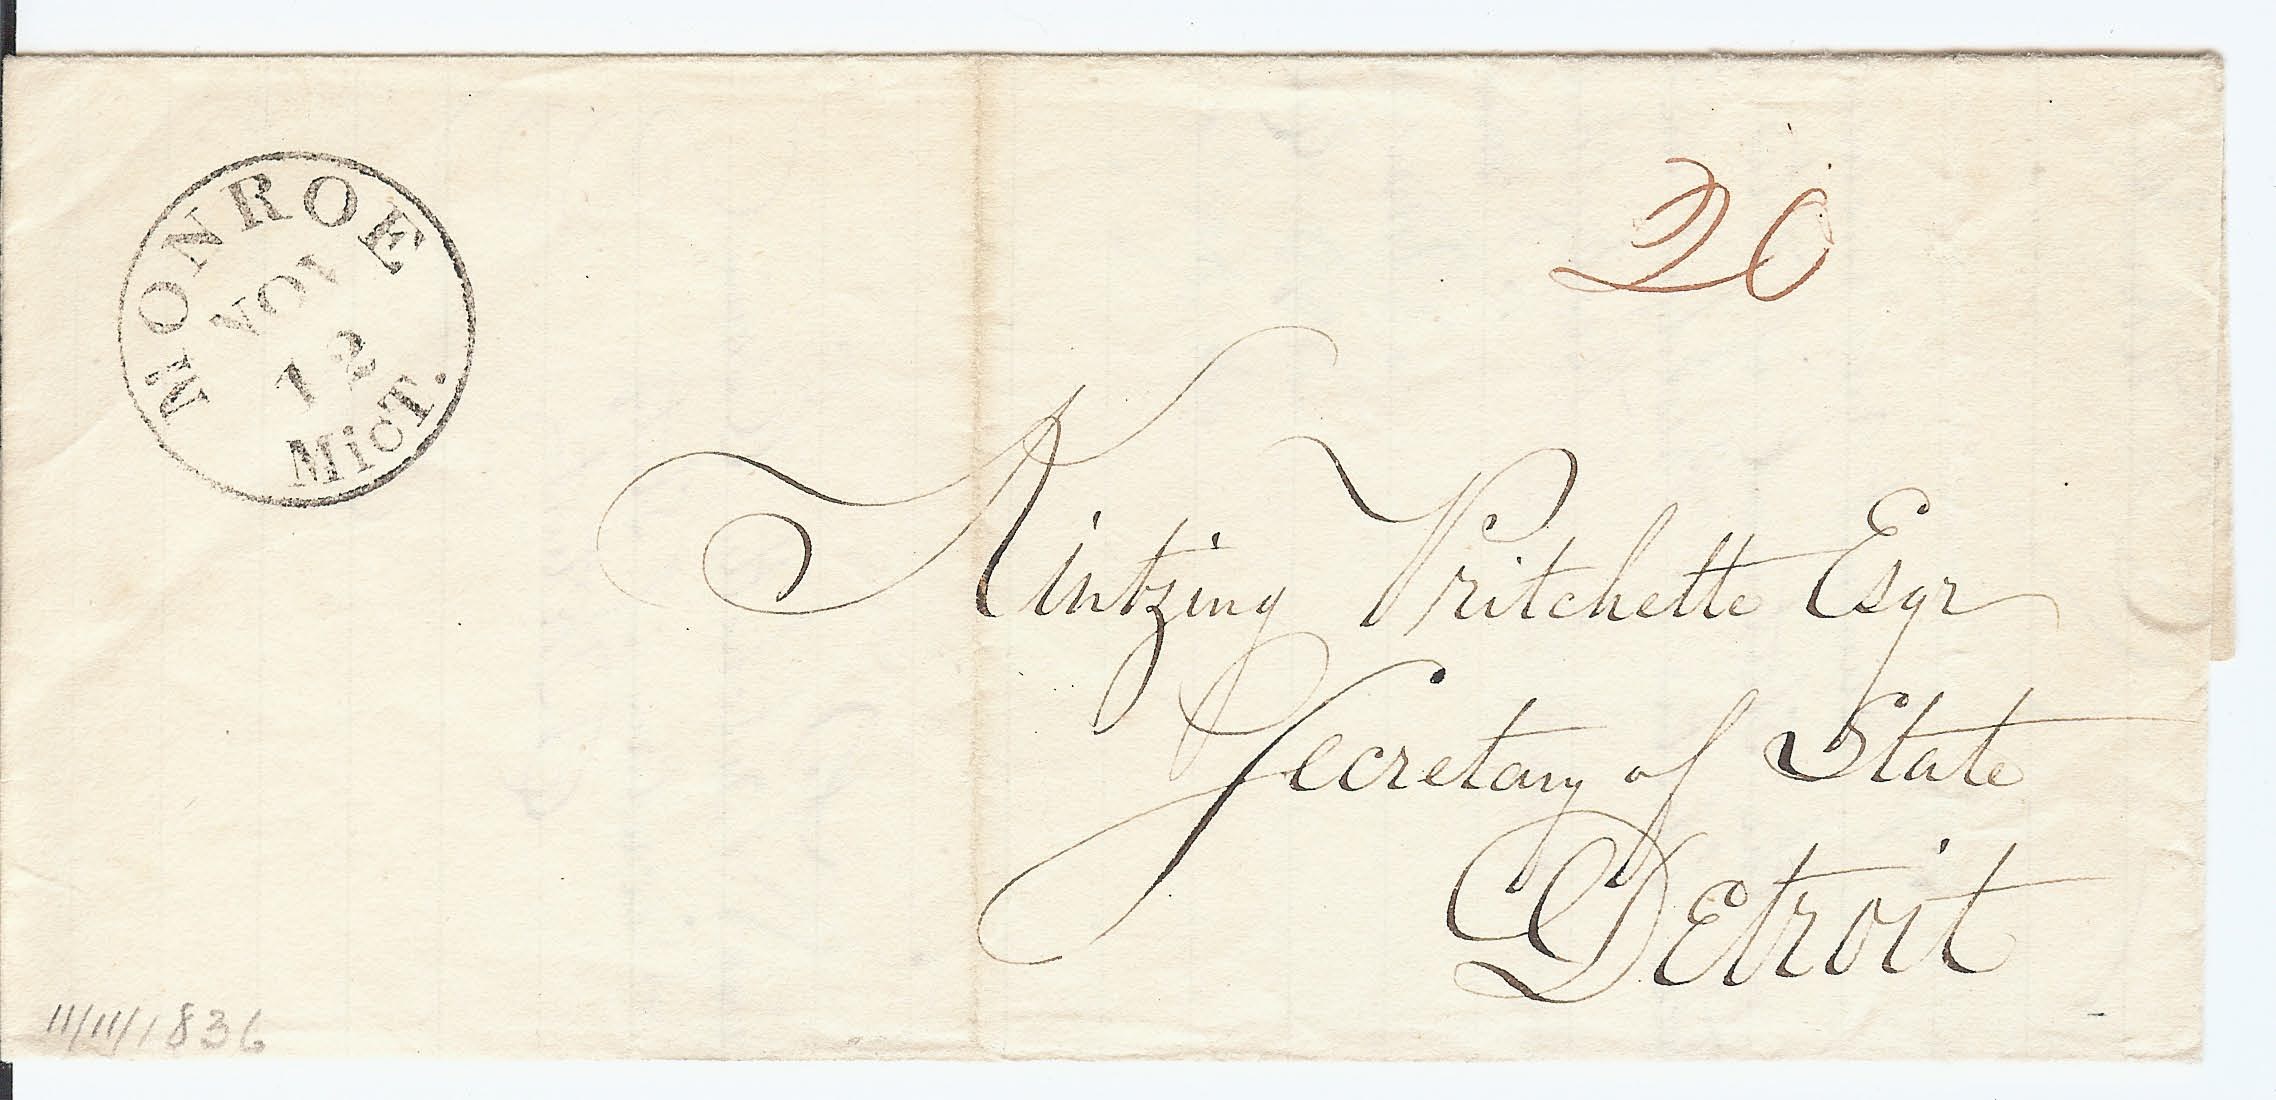 MONROE
NOV
12
MicT.
20
Kintzing Pritchette Esqr
Secretary of State
Detroit
11/11/1836